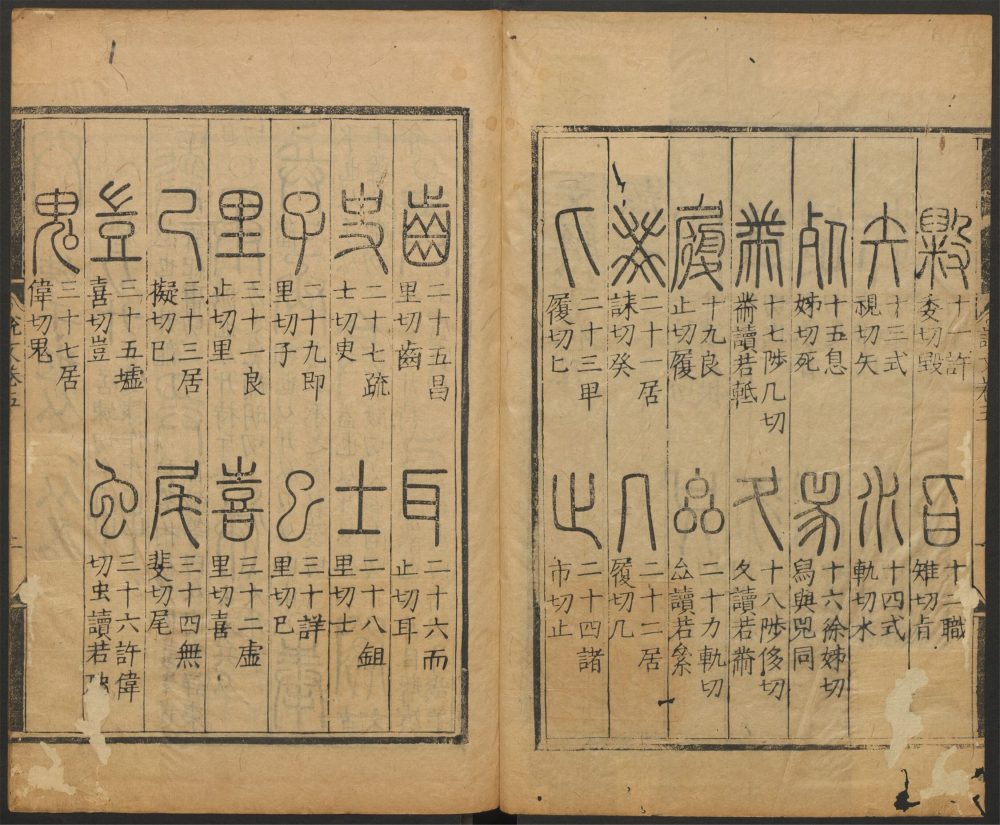 毀
十許
委切毀
旨
十二職
雉切旨
矢
十三式
視切矢
水
十四式
軌切水
死
十五息
姊切死
舄
十六徐姊切
舄與兕同
黹
十七陟几切
黹讀若輊
夂
十八陟侈切
夂讀若黹
履
十九良
止切履
厽
二十力軌切
厽讀若絫
癸
二十一居
誄切癸
几
二十二居
履切几
匕
二十三卑
履切匕
止
二十四諸
市切止
齒
二十五昌
里切齒
耳
二十六而
止切耳
史
二十七疏
士切史
士
二十八鉏
里切士
子
二十九即
里切子
巳
三十詳
里切巳
里
三十一良
止切里
喜
三十二虛
里切喜
己
三十三居
擬切己
尾
三十四無
斐切尾
豈
三十五墟
喜切豈
虫
三十六許偉
切虫讀若
鬼
三十七居
偉切鬼
說文卷五